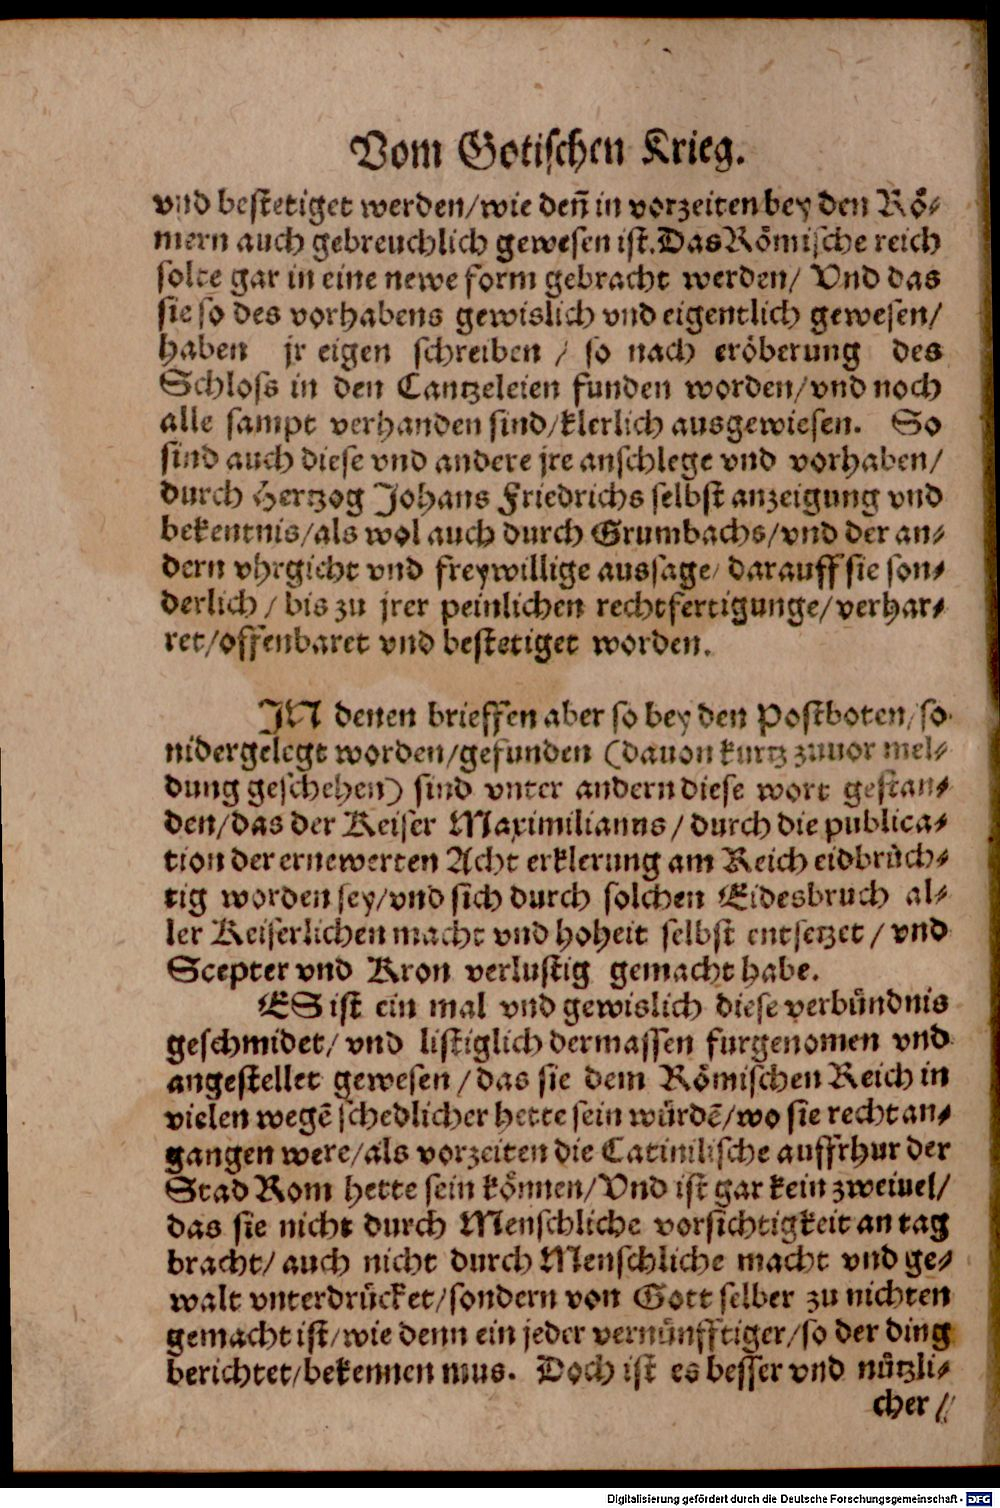 Vom Gotischen Krieg.
vnd bestetiget werden/wie deñ in vorzeiten bey den Rö-
mern auch gebreuchlich gewesen ist. Das Römische reich
solte gar in eine newe form gebracht werden/ Vnd das
sie so des vorhabens gewislich vnd eigentlich gewesen/
haben jr eigen schreiben / so nach eröberung des
Schloss in den Cantzeleien funden worden/vnd noch
alle sampt verhanden sind/klerlich ausgewiesen. So
sind auch diese vnd andere jre anschlege vnd vorhaben/
durch Hertzog Johans Friedrichs selbst anzeigung vnd
bekentnis/als wol auch durch Grumbachs/vnd der an-
dern vhrgicht vnd freywillige aussage/ darauff sie son-
derlich / bis zu jrer peinlichen rechtfertigunge/verhar-
ret/offenbaret vnd bestetiget worden.
IN denen brieffen aber so bey den Postboten/so
nidergelegt worden/gefunden (dauon kurtz zuuor mel-
dung geschehen) sind vnter andern diese wort gestan-
den/das der Keiser Maximilianns / durch die publica-
tion der ernewerten Acht erklerung am Reich eidbrüch-
tig worden sey/vnd sich durch solchen Eidesbruch al-
ler Keiserlichen macht vnd hoheit selbst entsetzet / vnd
Scepter vnd Kron verlustig gemacht habe.
ES ist ein mal vnd gewislich diese verbündnis
geschmidet/ vnd listiglich dermassen furgenomen vnd
angestellet gewesen / das sie dem Römischen Reich in
vielen wegē schedlicher hette sein würdē/wo sie recht an-
gangen were/als vorzeiten die Catinilische auffrhur der
Stad Rom hette sein können/Vnd ist gar kein zweiuel/
das sie nicht durch Menschliche vorsichtigkeit an tag
bracht/ auch nicht durch Menschliche macht vnd ge-
walt vnterdrücket/sondern von Gott selber zu nichten
gemacht ist/wie denn ein jeder vernünfftiger/so der ding
berichtet/bekennen mus. Doch ist es besser vnd nützli-
cher //
Digitalisierung gefördert durch die Deutsche Forschungsgemeinschaft - DFG